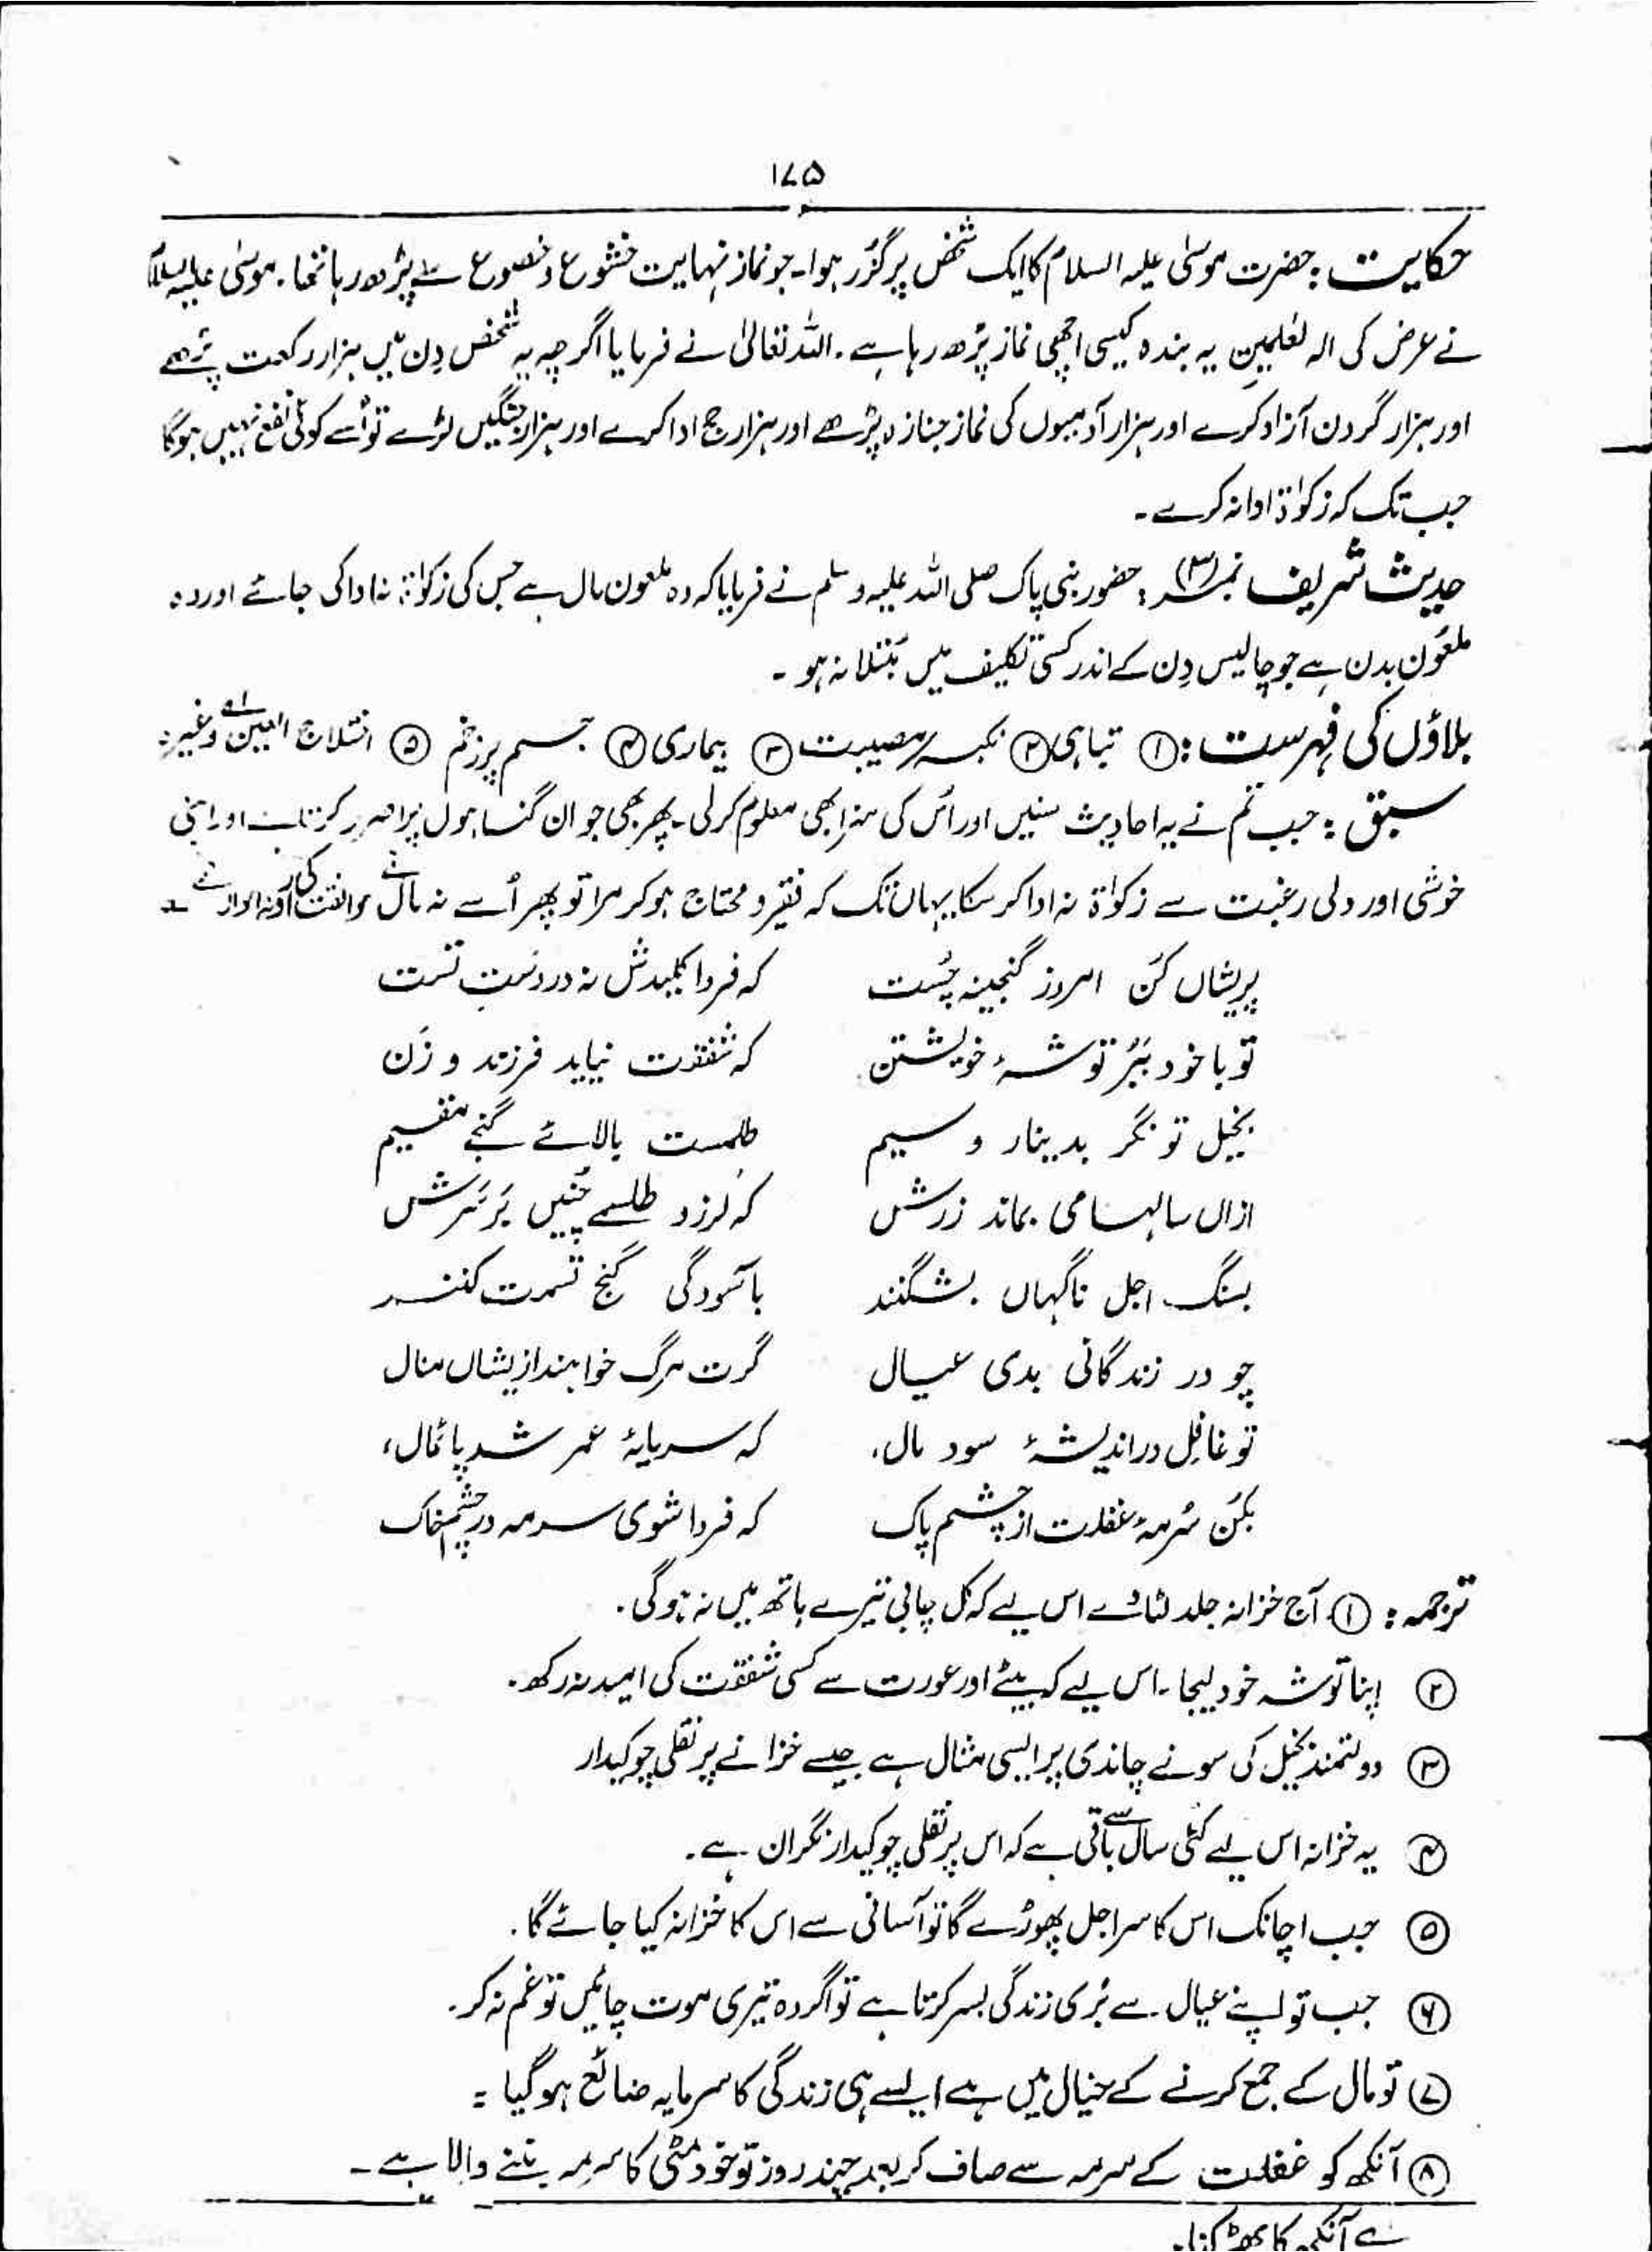 ۱۷۵
حکایت: حضرت موسٰی علیہ السلام کا ایک شخص پر گزُر ہوا۔ جو نماز نہایت خشوع و خصوع سے پڑھ رہا تھا۔ موسٰی علیہ السلام
نے عرض کی الہ لعٰلمین یہ بندہ کیسی اچھی نماز پڑھ رہا ہے۔ اللہ تعالیٰ نے فرمایا اگرچہ یہ شخص دِن میں ہزار رکعت پڑھے
اور ہزار گردن آزاد کرے اور ہزار آدمیوں کی نماز جنازہ پڑھے اور ہزار حج ادا کرے اور ہزار جنگیں لڑے تو اُسے کوئی نفع نہیں ہوگا
جب تک کہ زکوٰۃ ادا نہ کرے۔
حدیث شریف نمبر (۳): حضور نبی پاک صلی اللہ علیہ وسلم نے فرمایا کہ وہ ملعون مال ہے جس کی زکوٰۃ نہ ادا کی جائے اور وہ
ملعُون بدن ہے جو چالیس دِن کے اندر کسی تکلیف میں مُبتلا نہ ہو۔
بلاؤں کی فہرست: ① تباہی ② نکبہ مصیبت ③ بیماری ④ جسم پر زخم ⑤ اختلاج العین ؎۱ وغیرہ
سبق: جب تم نے یہ احادیث سنیں اور اُس کی سزا بھی معلوم کرلی۔ پھر بھی جو ان گناہوں پر اصرر کرتا ہے اور اپنی
خوشی اور دلی رغبت سے زکوٰۃ نہ ادا کر سکا یہاں تک کہ فقیر و محتاج ہو کر مرا تو پھر اُسے نہ مال نے موافقت کی اور نہ
پریشاں کُن امروز گنجینہ چُست کہ فردا کلیدش نہ در دستِ تست
تو با خود بَبَر توشۂ خویشتن کہ شفقت نیاید فرزند و زَن
بخیل تونگر بدینار و سیم طلمست بالائے گنجے مقیم
ازاں سالہا می بماند زرش کہ لرزد طلسمے چُنیں بَر سَرش
بسنگ اجل ناگہاں بشگنند بآسودگی گنج قسمت کنند
چو در زندگانی بدی عیال گرت مرگ خواہند از یشاں منال
تو غافِل در اندیشۂ سود مال، کہ سرمایۂ عمر شد پائمال،
بکُن سُرمۂ غفلت از چشم پاک کہ فردا شوی سرمہ در چشمِ خاک
ترجمہ: ① آج خزانہ جلد لٹا دے اس لیے کہ کل چابی تیرے ہاتھ میں نہ ہوگی۔
② اپنا توشہ خود لیجا۔ اس لیے کہ بیٹے اور عورت سے کسی شفقت کی امید نہ رکھ۔
③ دولتمند بخیل کی سونے چاندی پر ایسی مثال ہے جیسے خزانے پر نقلی چوکیدار
④ یہ خزانہ اس لیے کئی سال سے باقی ہے کہ اس پر نقلی چوکیدار نگران ہے۔
⑤ جب اچانک اس کا سر اجل پھوڑے گا تو آسانی سے اس کا خزانہ کیا جائے گا۔
⑥ جب تو اپنے عیال سے بُری زندگی بسر کرتا ہے تو اگر وہ تیری موت چاہیں تو غم نہ کر۔
⑦ تو مال کے جمع کرنے کے خیال میں ہے ایسے ہی زندگی کا سرمایہ ضائع ہوگیا =
⑧ آنکھ کو غفلت کے سرمہ سے صاف کر بعد چند روز تو خود مٹی کا سرمہ بننے والا ہے۔
؎ آنکھ کا پھڑکنا۔